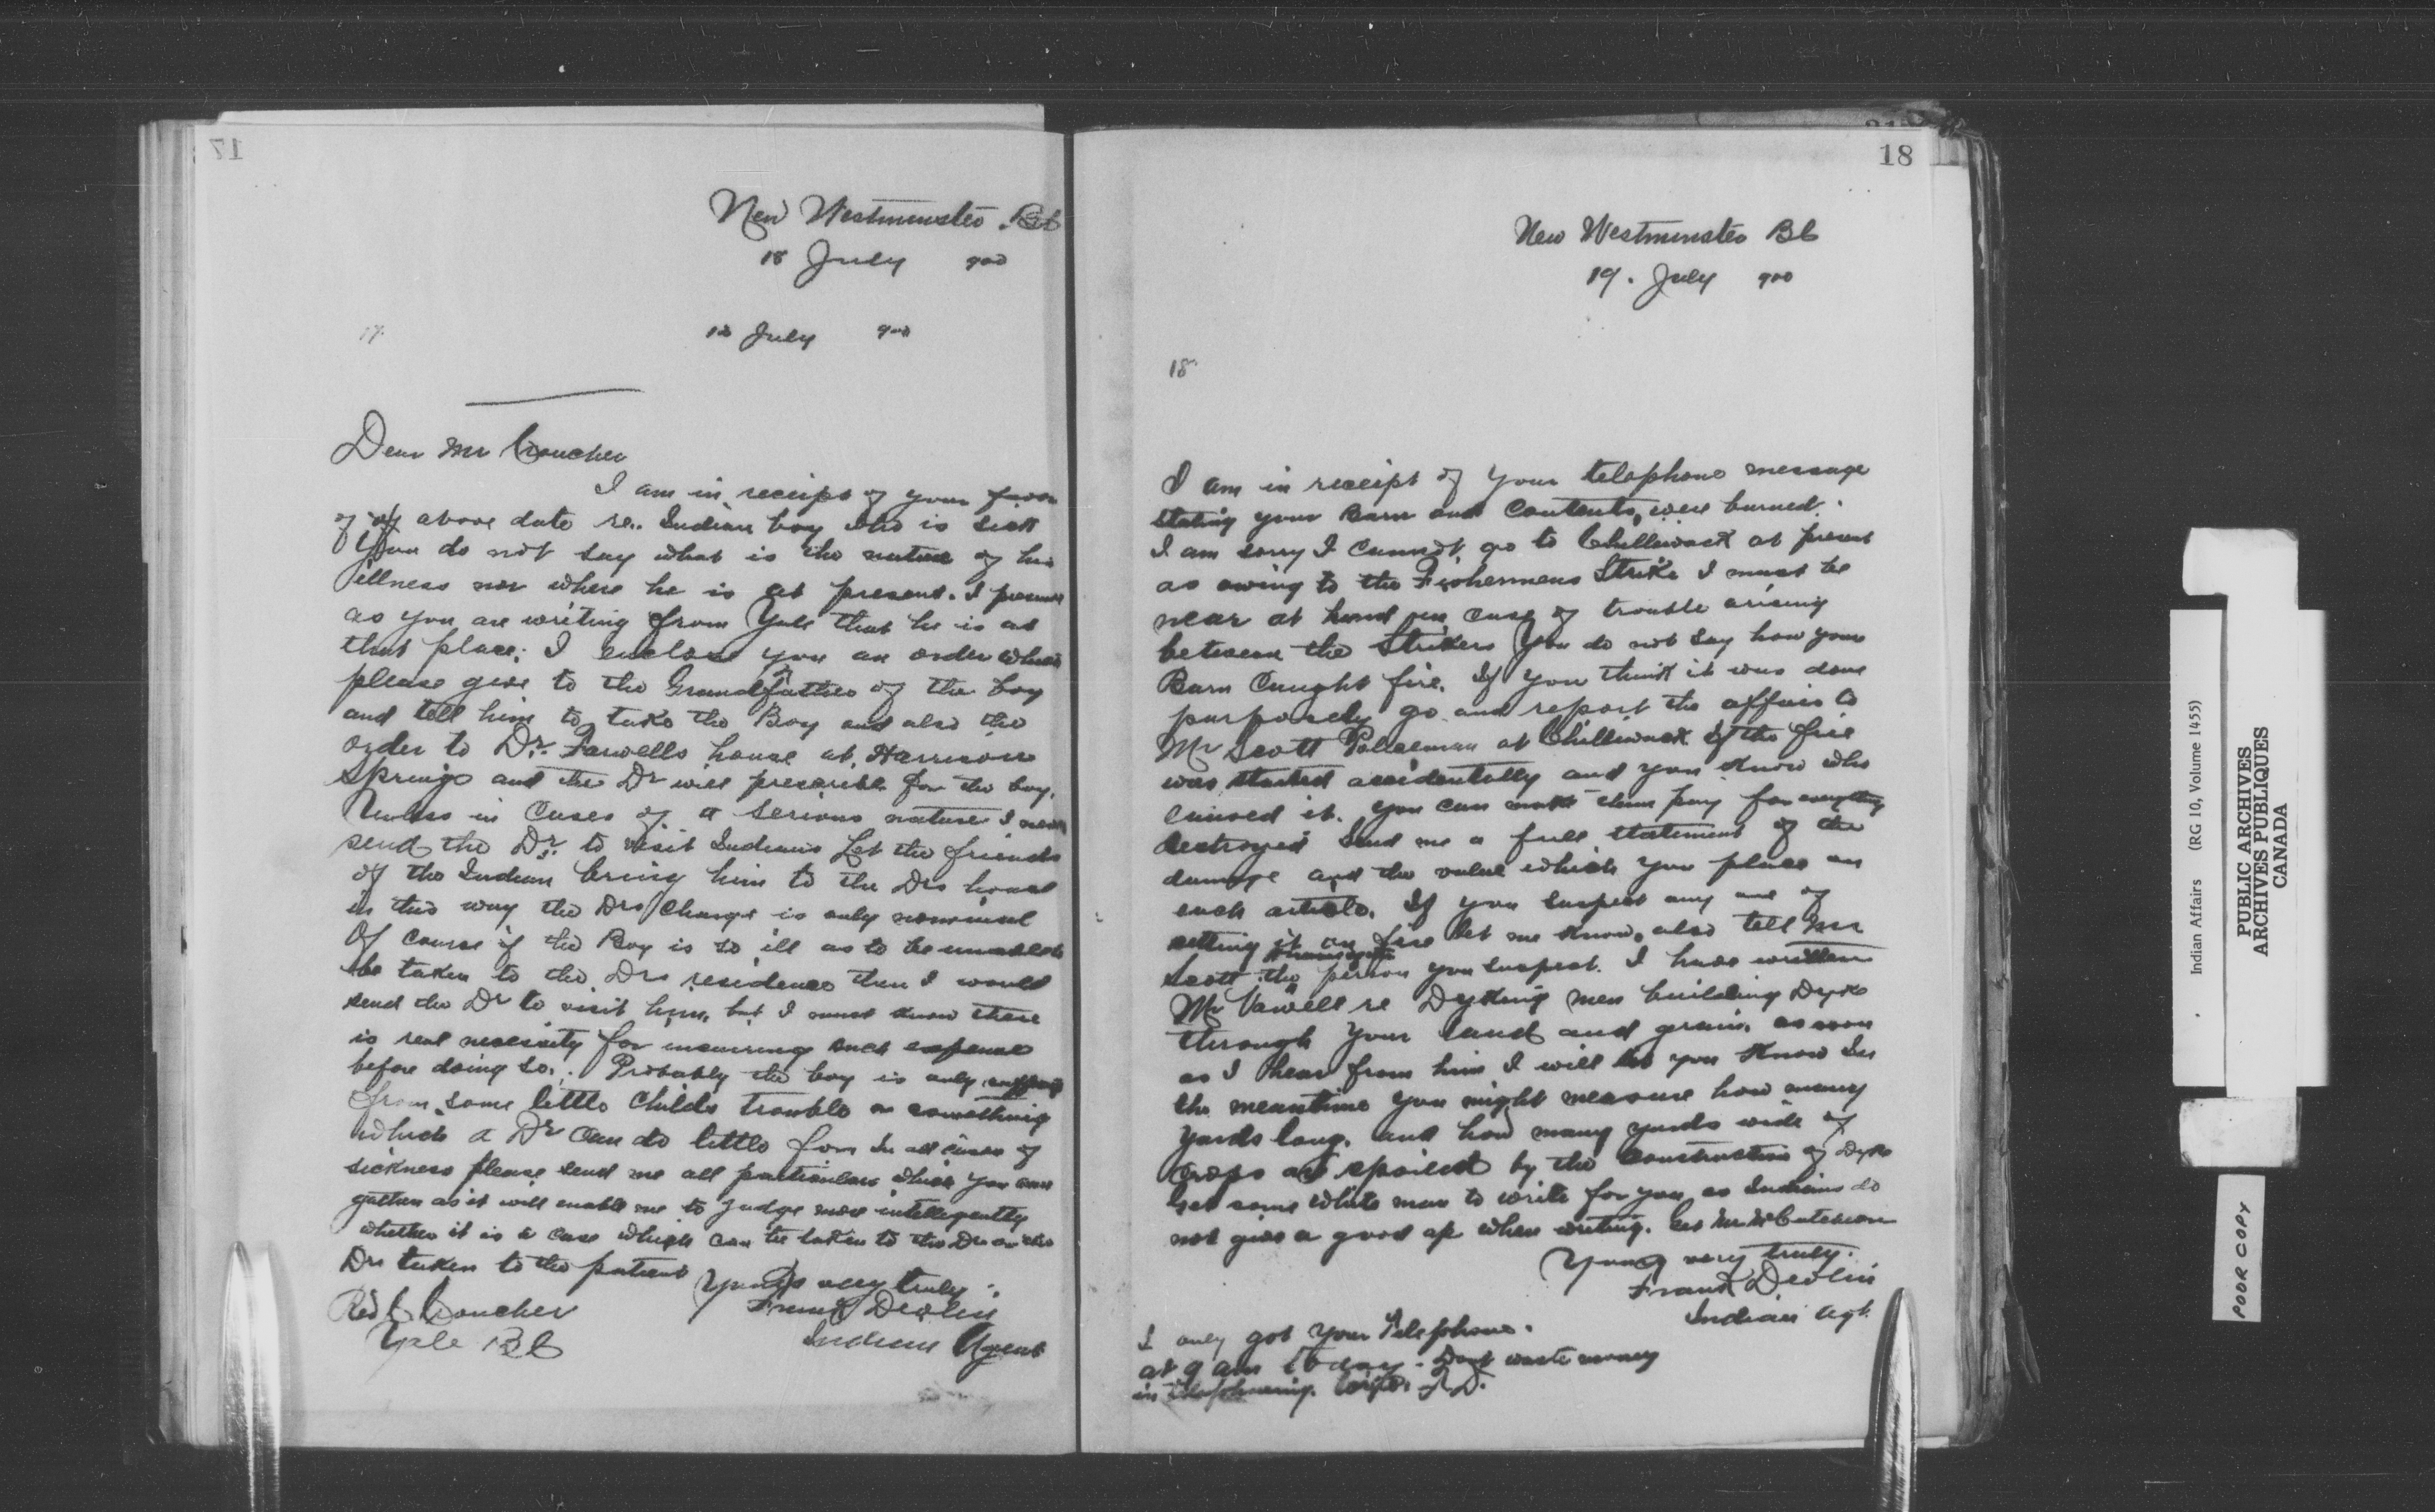 17
New Westminster B.C
18 July 900
17.
12 July 900
Dear Mr Croucher
I am in receipt of your favor
of of above date re. Indian boy who is sick
You do not say what is the nature of his
illness nor where he is at present. I presume
as you are writing from Yale that he is at
that place; I enclose you an order which
please give to the Grandfather of the boy
and tell him to take the Boy and also the
order to Dr. Farwells house at Harrison
Springs and the Dr will prescribe for the boy.
Unless in Cases of a serious nature I never
send the Dr. to visit Indians Let the friends
of the Indian bring him to the Drs house
in this way the Drs Charge is only nominal
Of Course if the Boy is so ill as to be unable to
be taken to the Drs residence then I would
send the Dr to visit him, but I must know there
is real necessity for incurring such expense
before doing so. Probably the boy is only suffering
from some little Childs trouble or something
which a Dr Can do little for In all cases of
sickness please send me all particulars which you can
gather as it will enable me to Judge more intelligently
whether it is a case which can be taken to the Dr or the
Dr taken to the patient
Yours very truly
Frank Devlin
Indian Agent
Rev C Croucher
Yale BC
18
New Westminster BC
19. July 900
18
I am in receipt of your telephone message
stating your Barn and Contents, were burned.
I am sorry I cannot go to Chilliwack at present
as owing to the Fishermens Strike I must be
near at hand in case of trouble arising
between the Strikers You do not say how your
Barn Caught fire. If you think it was done
purposely go and report the affair to
Mr Scott Policeman at Chilliwack If the fire
was started accidentally and you know who
caused it. You can make them pay for everything
destroyed Send me a full statement of the
damage and the value which you place on
each article. If you suspect any one of
setting it on fire let me know. also tell Mr
Scott the person you suspect. I have written
Mr Vowell re Dyking men building Dyke
through your land and grain. as soon
as I hear from him I will let you know In
the meantime you might measure how many
yards long. and how many yards wide of
Crops are spoiled by the Construction of Dyke
Get some white man to write for you as Indians do
not give a good a/c when writing. Get Mr McCutcheon
Yours very truly.
Frank Devlin
Indian Agt.
I only got your Telephone.
at 9 am today. Dont waste money
in telephoning. write. F.D.
Indian Affairs (RG 10, Volume 1455)
PUBLIC ARCHIVES
ARCHIVES PUBLIQUES
CANADA
POOR COPY